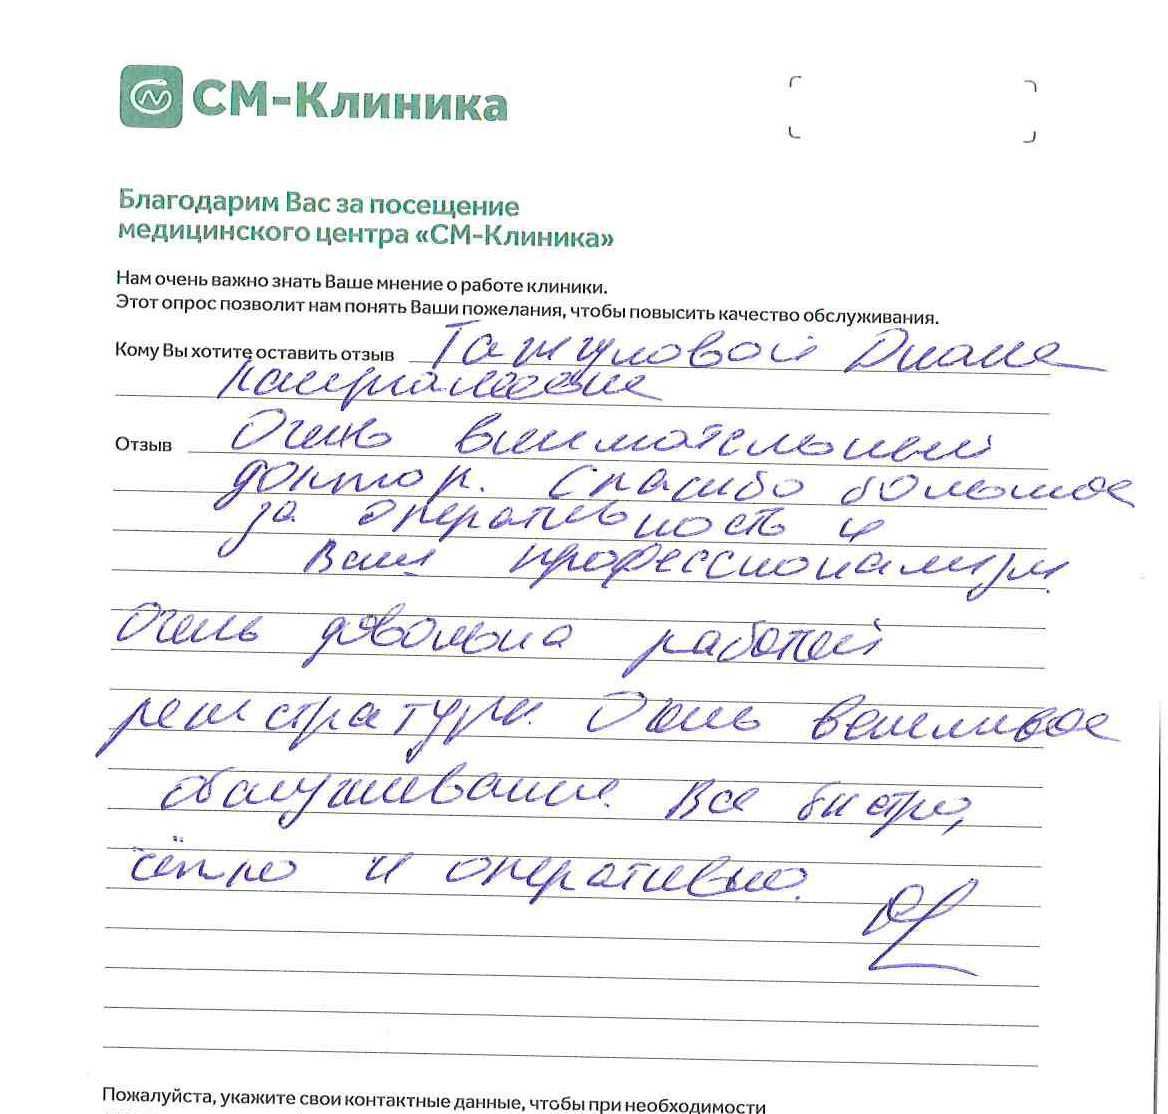 СМ-Клиника
Благодарим Вас за посещение
медицинского центра «СМ-Клиника»
Нам очень важно знать Ваше мнение о работе клиники.
Этот опрос позволит нам понять Ваши пожелания, чтобы повысить качество обслуживания.
Кому Вы хотите оставить отзыв Диане
Отзыв Очень внимательный
доктор. Спасибо большое
за оперативность и
Ваш профессионализм.
Очень довольна работой
регистратуры. Очень вежливое
обслуживание. Все быстро,
чётко и оперативно.
Пожалуйста, укажите свои контактные данные, чтобы при необходимости